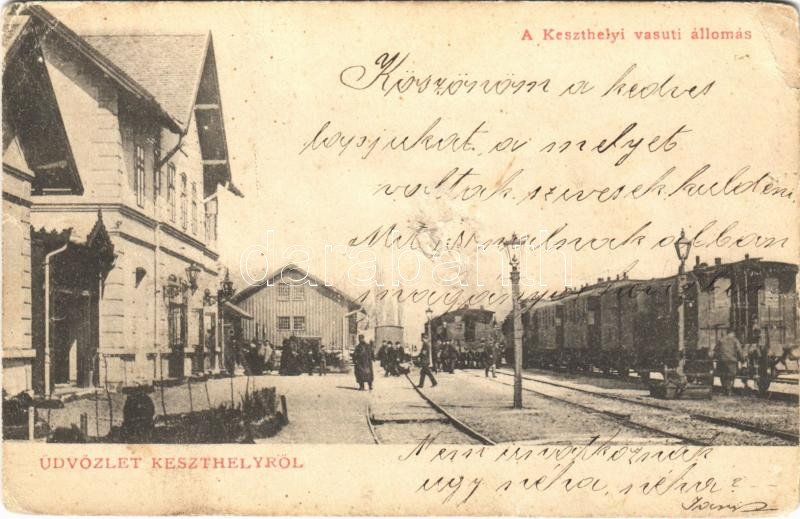 A Keszthelyi vasuti állomás
Köszönöm a kedves
lapjukat, a melyet
voltak szivesek küldeni.
Mit is csinálnak abban
a nagy
ÜDVÖZLET KESZTHELYRŐL
Nem unatkoznak
ugy néha, néha? -